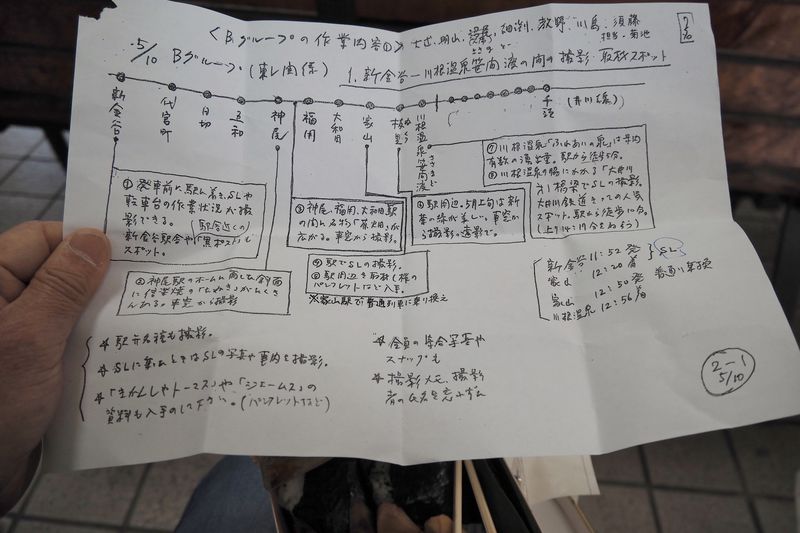 <Bグループの作業内容①>
担当・菊池
5/10 Bグループ(東レ関係)
1. 新金谷ー川根温泉笹間渡の間の撮影・取材スポット
新金谷
代官町
日切
五和
神尾
福用
大和田
家山
抜里
川根温泉笹間渡
千頭
(井川線)
①発車前に駅に着き、SLや
転車台の作業状況が撮
影できる。(駅近くの)
新金谷駅舎や「黒ポスト」も
スポット。
②神尾駅のホーム両した斜面
に信楽焼の「たぬき」がたくさ
んある。車窓から撮影
③神尾、福用、大和田駅
の間に名物「茶畑」が
広がる。車窓から撮影。
④駅でSLの撮影。
⑤駅周辺を取材(桜の
パンフレットなど入手。
※家山駅で普通列車に乗り換え
⑥駅周辺。5月上旬は新
茶の緑が美しい。車窓か
ら撮影。遠影で。
⑦川根温泉「ふれあいの泉」は県内
有数の湧出量。駅から徒歩5分。
⑧川根温泉の脇にかかる「大井川
第1橋梁でSLの撮影。
大井川鉄道きっての人気
スポット。駅から徒歩10分。
新金谷 11:52 発
家山 12:20 着
SL
家山 12:50 発
川根温泉 12:56 着
普通列車
☆駅弁各種も撮影。
☆SLに乗ったときはSLの写真や車内を撮影。
☆「きかんしゃトーマス」や「ジェームス」の
資料も入手のして下さい。(パンフレットなど)
☆全員の集合写真や
スナップも
☆撮影メモ、撮影
者の氏名を忘れずに
2-1
5/10